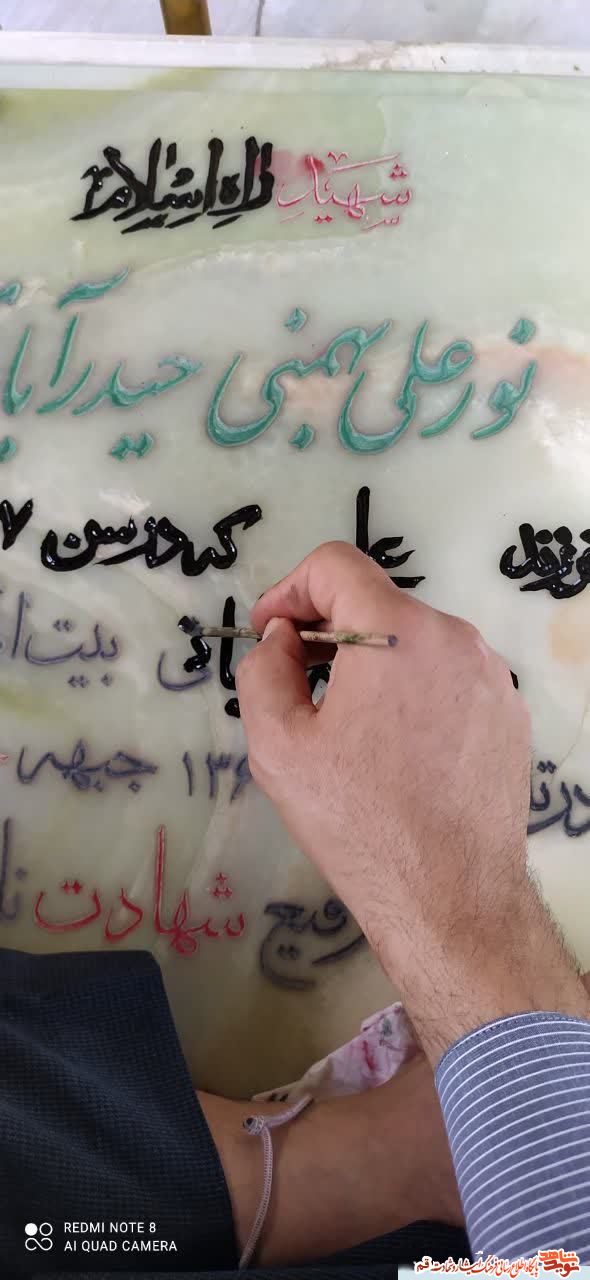 شهید راه اسلام
نورعلی بهمنی حیدرآبا
فرزند علی که در سن ۷
بیت ا
۱۳۶ جبهه
رفیع شهادت نا
REDMI NOTE 8
AI QUAD CAMERA
نوید شاهد پایگاه اطلاع رسانی فرهنگ ایثار و شهادت قم